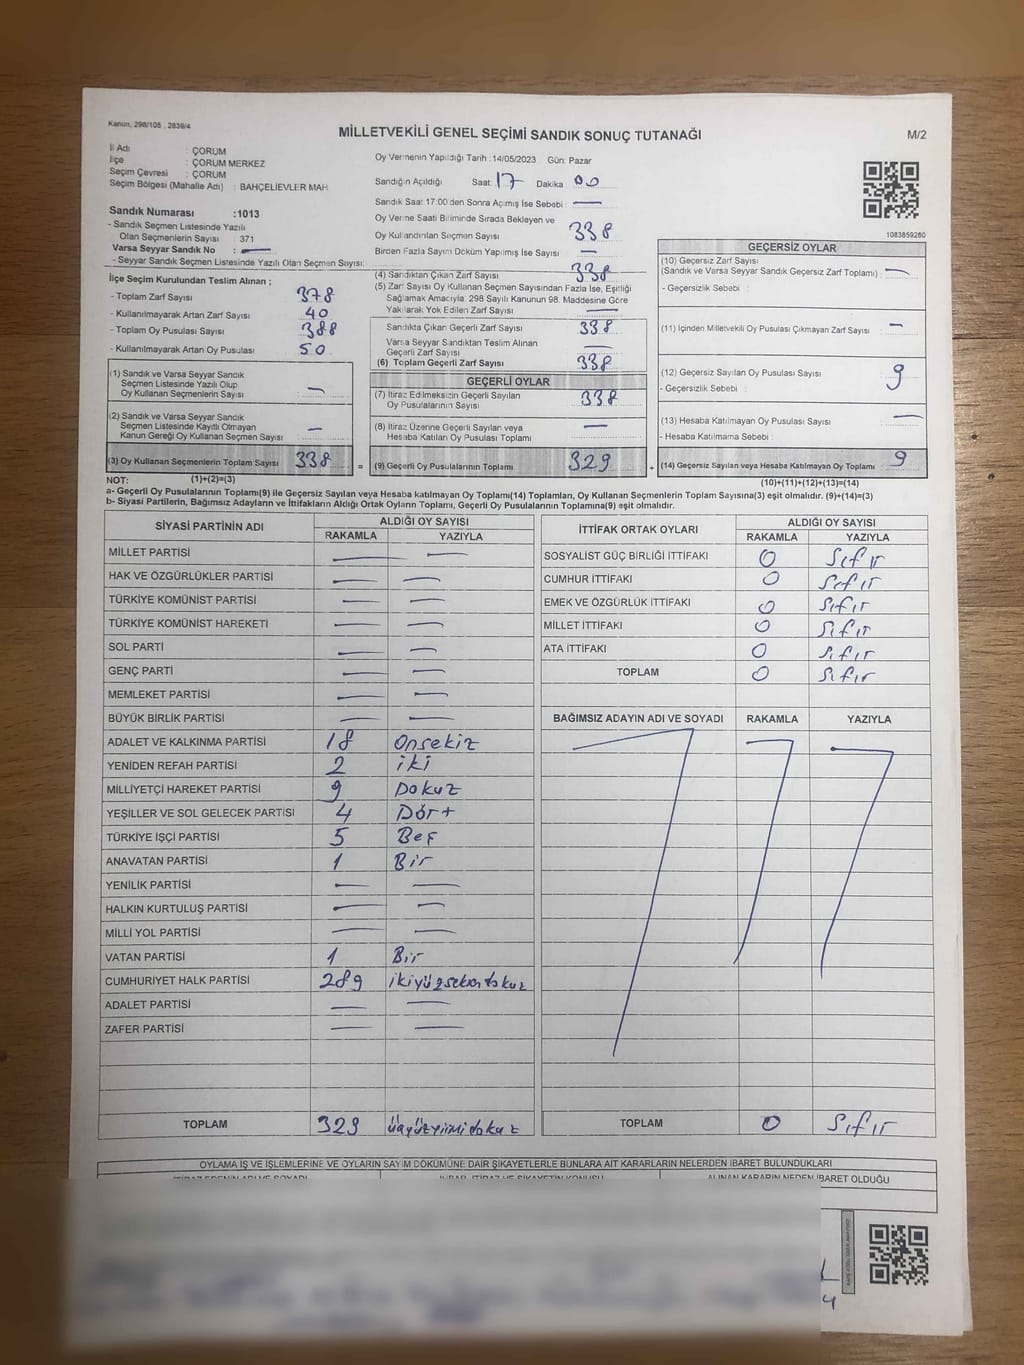 Kanun, 298/105 , 2839/4
MİLLETVEKİLİ GENEL SEÇİMİ SANDIK SONUÇ TUTANAĞI
M/2
İl Adı : ÇORUM
İlçe : ÇORUM MERKEZ
Seçim Çevresi : ÇORUM
Seçim Bölgesi (Mahalle Adı) : BAHÇELİEVLER MAH
Sandık Numarası :1013
- Sandık Seçmen Listesinde Yazılı
Olan Seçmenlerin Sayısı : 371
Varsa Seyyar Sandık No : —
- Seyyar Sandık Seçmen Listesinde Yazılı Olan Seçmen Sayısı:
Oy Vermenin Yapıldığı Tarih :14/05/2023 Gün: Pazar
Sandığın Açıldığı Saat: 17 Dakika 00
Sandık Saat 17:00'den Sonra Açımış İse Sebebi : —
Oy Verme Saati Bitiminde Sırada Bekleyen ve
Oy Kullandırılan Seçmen Sayısı 338
Birden Fazla Sayım Döküm Yapılmış İse Sayısı —
1083859280
İlçe Seçim Kurulundan Teslim Alınan ;
- Toplam Zarf Sayısı 378
- Kullanılmayarak Artan Zarf Sayısı 40
- Toplam Oy Pusulası Sayısı 388
- Kullanılmayarak Artan Oy Pusulası 50
(1) Sandık ve Varsa Seyyar Sandık
Seçmen Listesinde Yazılı Olup
Oy Kullanan Seçmenlerin Sayısı : —
(2) Sandık ve Varsa Seyyar Sandık
Seçmen Listesinde Kayıtlı Olmayan
Kanun Gereği Oy Kullanan Seçmen Sayısı : —
(3) Oy Kullanan Seçmenlerin Toplam Sayısı 338 =
(4) Sandıktan Çıkan Zarf Sayısı 338
(5) Zarf Sayısı Oy Kullanan Seçmen Sayısından Fazla İse, Eşitliği
Sağlamak Amacıyla 298 Sayılı Kanunun 98. Maddesine Göre
Yakılarak Yok Edilen Zarf Sayısı : —
Sandıkta Çıkan Geçerli Zarf Sayısı 338
Varsa Seyyar Sandıktan Teslim Alınan
Geçerli Zarf Sayısı —
(6) Toplam Geçerli Zarf Sayısı 338
GEÇERLİ OYLAR
(7) İtiraz Edilmeksizin Geçerli Sayılan
Oy Pusulalarının Sayısı 338
(8) İtiraz Üzerine Geçerli Sayılan veya
Hesaba Katılan Oy Pusulası Toplamı —
(9) Geçerli Oy Pusulalarının Toplamı 329 +
GEÇERSİZ OYLAR
(10) Geçersiz Zarf Sayısı
(Sandık ve Varsa Seyyar Sandık Geçersiz Zarf Toplamı) : —
- Geçersizlik Sebebi :
(11) İçinden Milletvekili Oy Pusulası Çıkmayan Zarf Sayısı : —
(12) Geçersiz Sayılan Oy Pusulası Sayısı 9
- Geçersizlik Sebebi :
(13) Hesaba Katılmayan Oy Pusulası Sayısı : —
- Hesaba Katılmama Sebebi :
(14) Geçersiz Sayılan veya Hesaba Katılmayan Oy Toplamı : 9
NOT: (1)+(2)=(3) (10)+(11)+(12)+(13)=(14)
a- Geçerli Oy Pusulalarının Toplamı(9) ile Geçersiz Sayılan veya Hesaba katılmayan Oy Toplamı(14) Toplamları, Oy Kullanan Seçmenlerin Toplam Sayısına(3) eşit olmalıdır. (9)+(14)=(3)
b- Siyasi Partilerin, Bağımsız Adayların ve İttifakların Aldığı Ortak Oyların Toplamı, Geçerli Oy Pusulalarının Toplamına(9) eşit olmalıdır.
SİYASİ PARTİNİN ADI ALDIĞI OY SAYISI
RAKAMLA YAZIYLA
MİLLET PARTİSİ — —
HAK VE ÖZGÜRLÜKLER PARTİSİ — —
TÜRKİYE KOMÜNİST PARTİSİ — —
TÜRKİYE KOMÜNİST HAREKETİ — —
SOL PARTİ — —
GENÇ PARTİ — —
MEMLEKET PARTİSİ — —
BÜYÜK BİRLİK PARTİSİ — —
ADALET VE KALKINMA PARTİSİ 18 Onsekiz
YENİDEN REFAH PARTİSİ 2 iki
MİLLİYETÇİ HAREKET PARTİSİ 9 Dokuz
YEŞİLLER VE SOL GELECEK PARTİSİ 4 Dört
TÜRKİYE İŞÇİ PARTİSİ 5 Beş
ANAVATAN PARTİSİ 1 Bir
YENİLİK PARTİSİ — —
HALKIN KURTULUŞ PARTİSİ — —
MİLLİ YOL PARTİSİ — —
VATAN PARTİSİ 1 Bir
CUMHURİYET HALK PARTİSİ 289 ikiyüzseksendokuz
ADALET PARTİSİ — —
ZAFER PARTİSİ — —
TOPLAM 329 üçyüzyirmidokuz
İTTİFAK ORTAK OYLARI ALDIĞI OY SAYISI
RAKAMLA YAZIYLA
SOSYALİST GÜÇ BİRLİĞİ İTTİFAKI 0 Sıfır
CUMHUR İTTİFAKI 0 Sıfır
EMEK VE ÖZGÜRLÜK İTTİFAKI 0 Sıfır
MİLLET İTTİFAKI 0 Sıfır
ATA İTTİFAKI 0 Sıfır
TOPLAM 0 Sıfır
BAĞIMSIZ ADAYIN ADI VE SOYADI RAKAMLA YAZIYLA
TOPLAM 0 Sıfır
OYLAMA İŞ VE İŞLEMLERİNE VE OYLARIN SAYIM DÖKÜMÜNE DAİR ŞİKAYETLERLE BUNLARA AİT KARARLARIN NELERDEN İBARET BULUNDUKLARI
ALINAN KARARIN NEDEN İBARET OLDUĞU